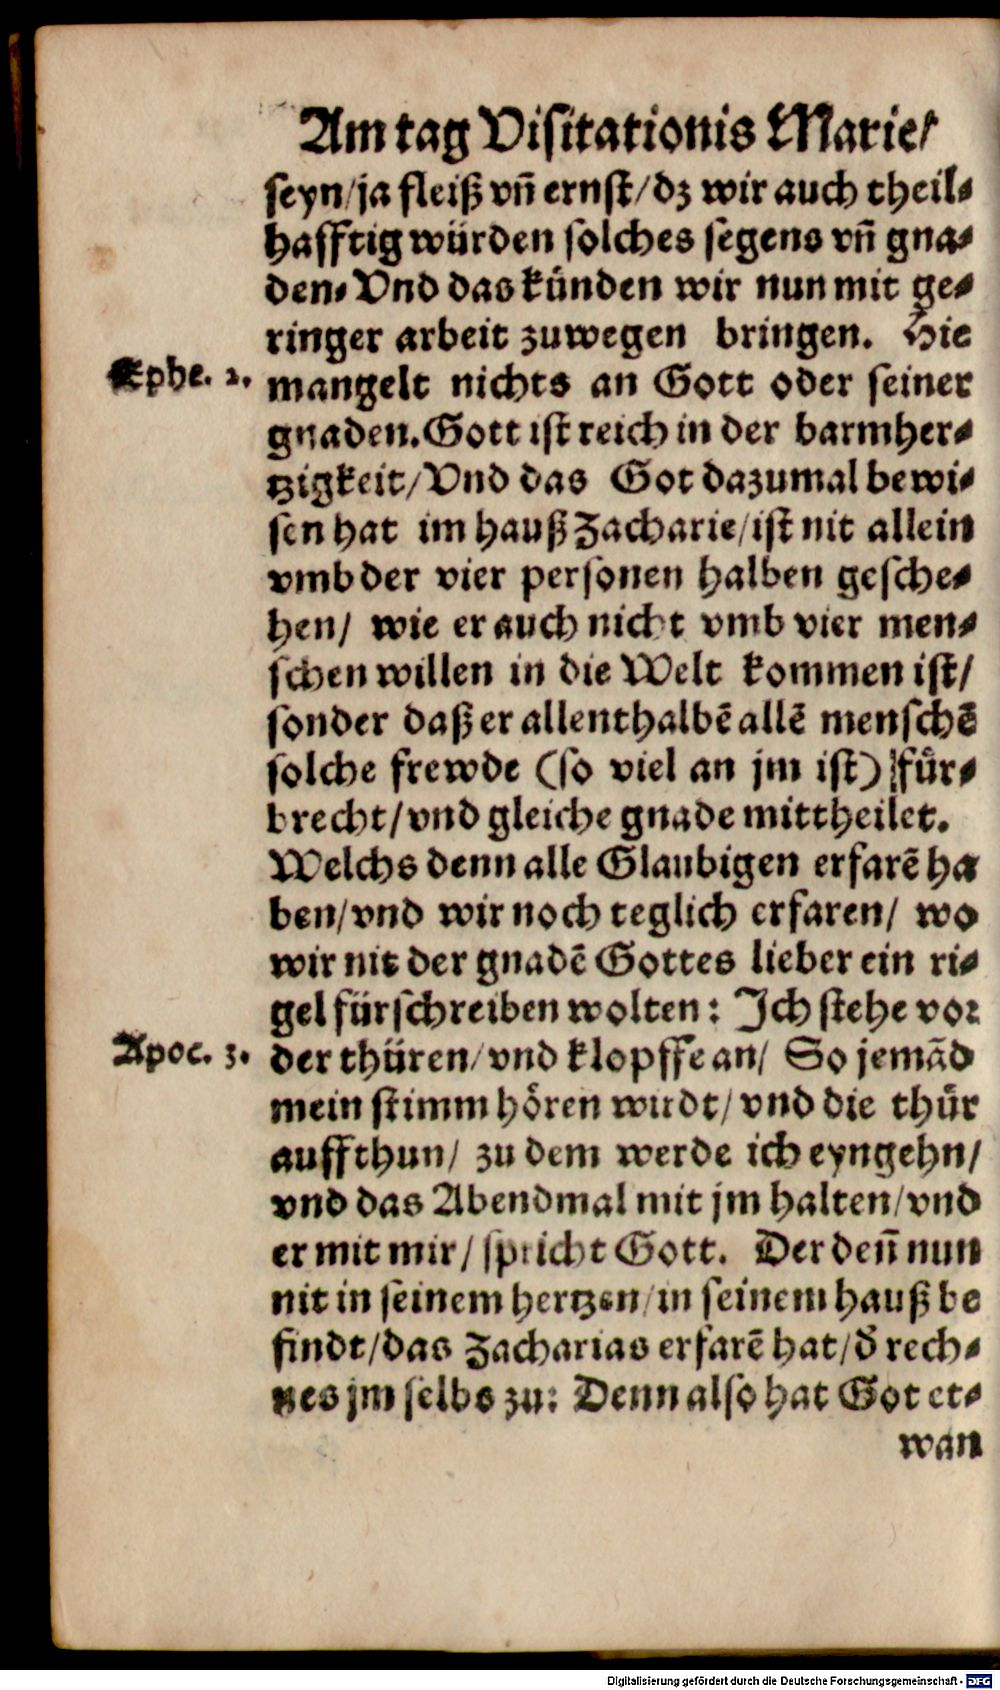 Am tag Visitationis Marie/
seyn/ja fleiß vñ ernst/dz wir auch theil-
hafftig würden solches segens vñ gna-
den. Vnd das künden wir nun mit ge-
ringer arbeit zuwegen bringen. Hie
Ephe. 2.
mangelt nichts an Gott oder seiner
gnaden. Gott ist reich in der barmher-
tzigkeit/Vnd das Got dazumal bewi-
sen hat im hauß Zacharie/ist nit allein
vmb der vier personen halben gesche-
hen/ wie er auch nicht vmb vier men-
schen willen in die Welt kommen ist/
sonder daß er allenthalbẽ allẽ menschẽ
solche frewde (so viel an jm ist) für-
brecht/vnd gleiche gnade mittheilet.
Welchs denn alle Glaubigen erfarẽ ha
ben/vnd wir noch teglich erfaren/ wo
wir nit der gnadẽ Gottes lieber ein ri-
gel fürschreiben wolten: Ich stehe vor
Apoc. 3.
der thüren/vnd klopffe an/ So jemãd
mein stimm hören wirdt/vnd die thür
auffthun/ zu dem werde ich eyngehn/
vnd das Abendmal mit jm halten/vnd
er mit mir/ spricht Gott. Der deñ nun
nit in seinem hertzen/in seinem hauß be
findt/das Zacharias erfarẽ hat/ď rech-
nes jm selbs zu: Denn also hat Got et-
wan
Digitalisierung gefördert durch die Deutsche Forschungsgemeinschaft - DFG